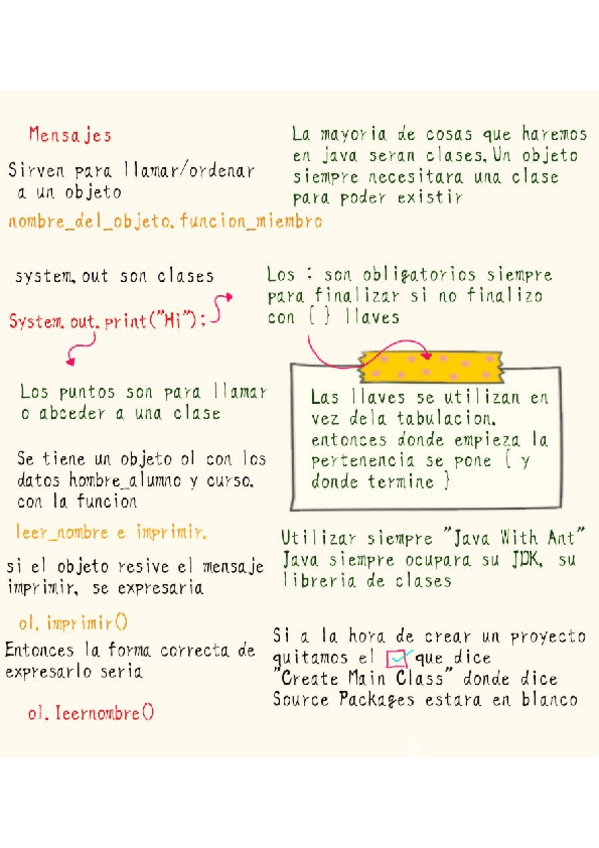 Mensajes
Sirven para llamar/ordenar
a un objeto
nombre_del_objeto.funcion_miembro
system.out son clases
System.out.print("Hi");
Los puntos son para llamar
o abceder a una clase
Se tiene un objeto ol con los
datos hombre_alumno y curso.
con la funcion
leer_nombre e imprimir.
si el objeto resive el mensaje
imprimir, se expresaria
ol.imprimir()
Entonces la forma correcta de
expresarlo seria
ol.leernombre()
La mayoria de cosas que haremos
en java seran clases.Un objeto
siempre necesitara una clase
para poder existir
Los ; son obligatorios siempre
para finalizar si no finalizo
con { } llaves
Las llaves se utilizan en
vez dela tabulacion.
entonces donde empieza la
pertenencia se pone { y
donde termine }
Utilizar siempre "Java With Ant"
Java siempre ocupara su JDK, su
libreria de clases
Si a la hora de crear un proyecto
quitamos el que dice
"Create Main Class" donde dice
Source Packages estara en blanco